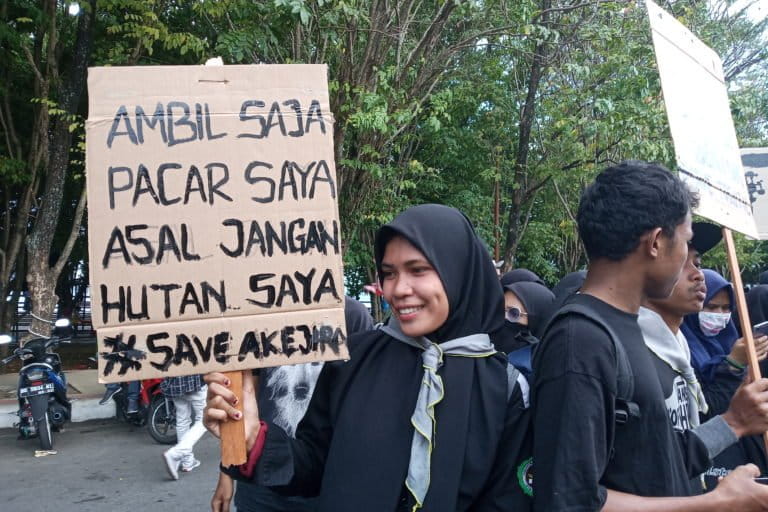 AMBIL SAJA
PACAR SAYA
ASAL JANGAN
HUTAN SAYA
#SAVE AKEJIRA